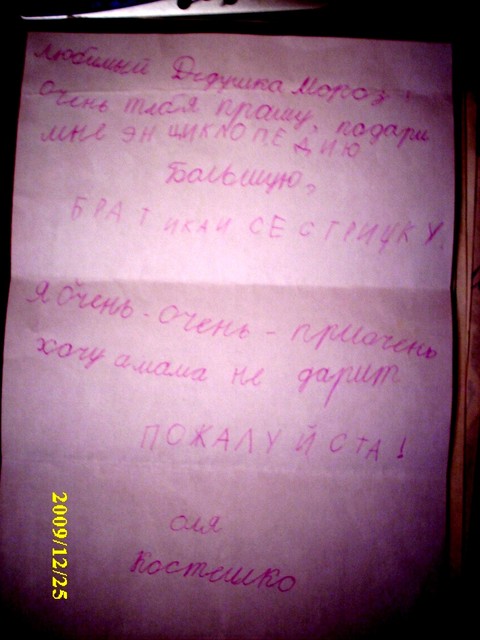 Любимый Дедушка Мороз!
Очень тебя прошу, подари
мне ЭНЦИКЛОПЕДИЮ
Большую,
БРАТИКАИ СЕСТРИЧКУ
Я Очень-Очень-приочень
хочу а мама не дарит
ПОЖАЛУЙСТА!
Оля
Костешко
2009/12/25